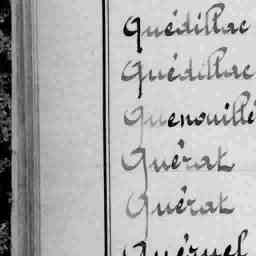 Quédillac
Quédillac
Quenouillé
Quérat
Quérat
Quéruel